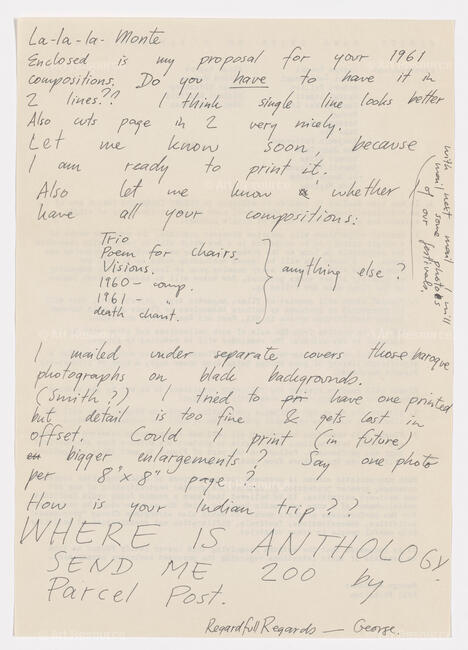 La-la-la- Monte
Enclosed is my proposal for your 1961
compositions. Do you have to have it in
2 lines?? I think single line looks better
Also cuts page in 2 very nicely.
Let me know soon, because
I am ready to print it.
Also let me know whether I
have all your compositions:
Trio
Poem for chairs.
Visions.
1960 - comp.
1961 - "
death chant.
anything else?
with next mail I will
mail some photos
of our festivals.
I mailed under separate covers those baroque
photographs on black backgrounds.
(Smith?) I tried to pri have one printed
but detail is too fine & gets lost in
offset. Could I print (in future)
bigger enlargements? Say one photo
per 8"x8" page?
How is your Indian trip??
WHERE IS ANTHOLOGY.
SEND ME 200 by
Parcel Post.
Regardfull Regards — George.